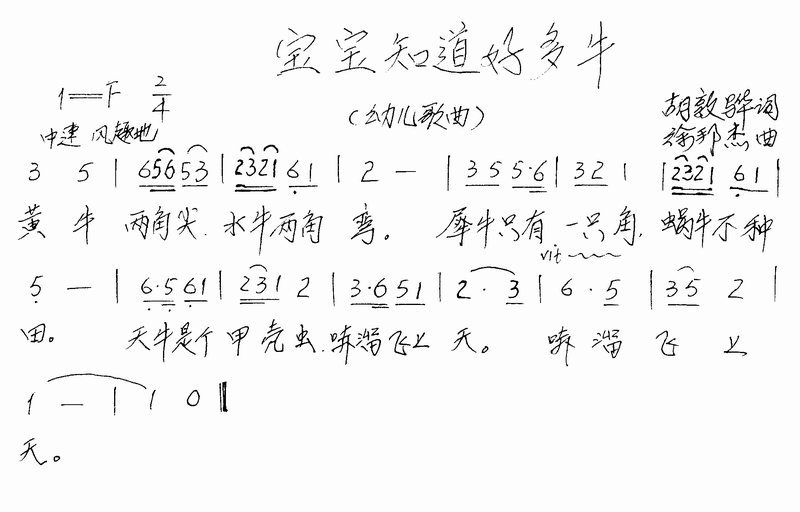 宝宝知道好多牛
1=F 2/4
（幼儿歌曲）
胡敦骅词
中速 风趣地
徐邦杰曲
3 5 | 6565 53 | 2321 61 | 2 — | 35 5·6 | 32 1 | 2321 61 |
黄牛 两角尖.水牛两角 弯。 犀牛只有 一只角.蜗牛不种
rit
5 — | 6·5 61 | 231 2 | 3·6 51 | 2· 3 | 6· 5 | 35 2 |
田。 天牛是个 甲壳虫.哧溜飞上 天。 哧溜飞上
1 — | 1 0 ‖
天。